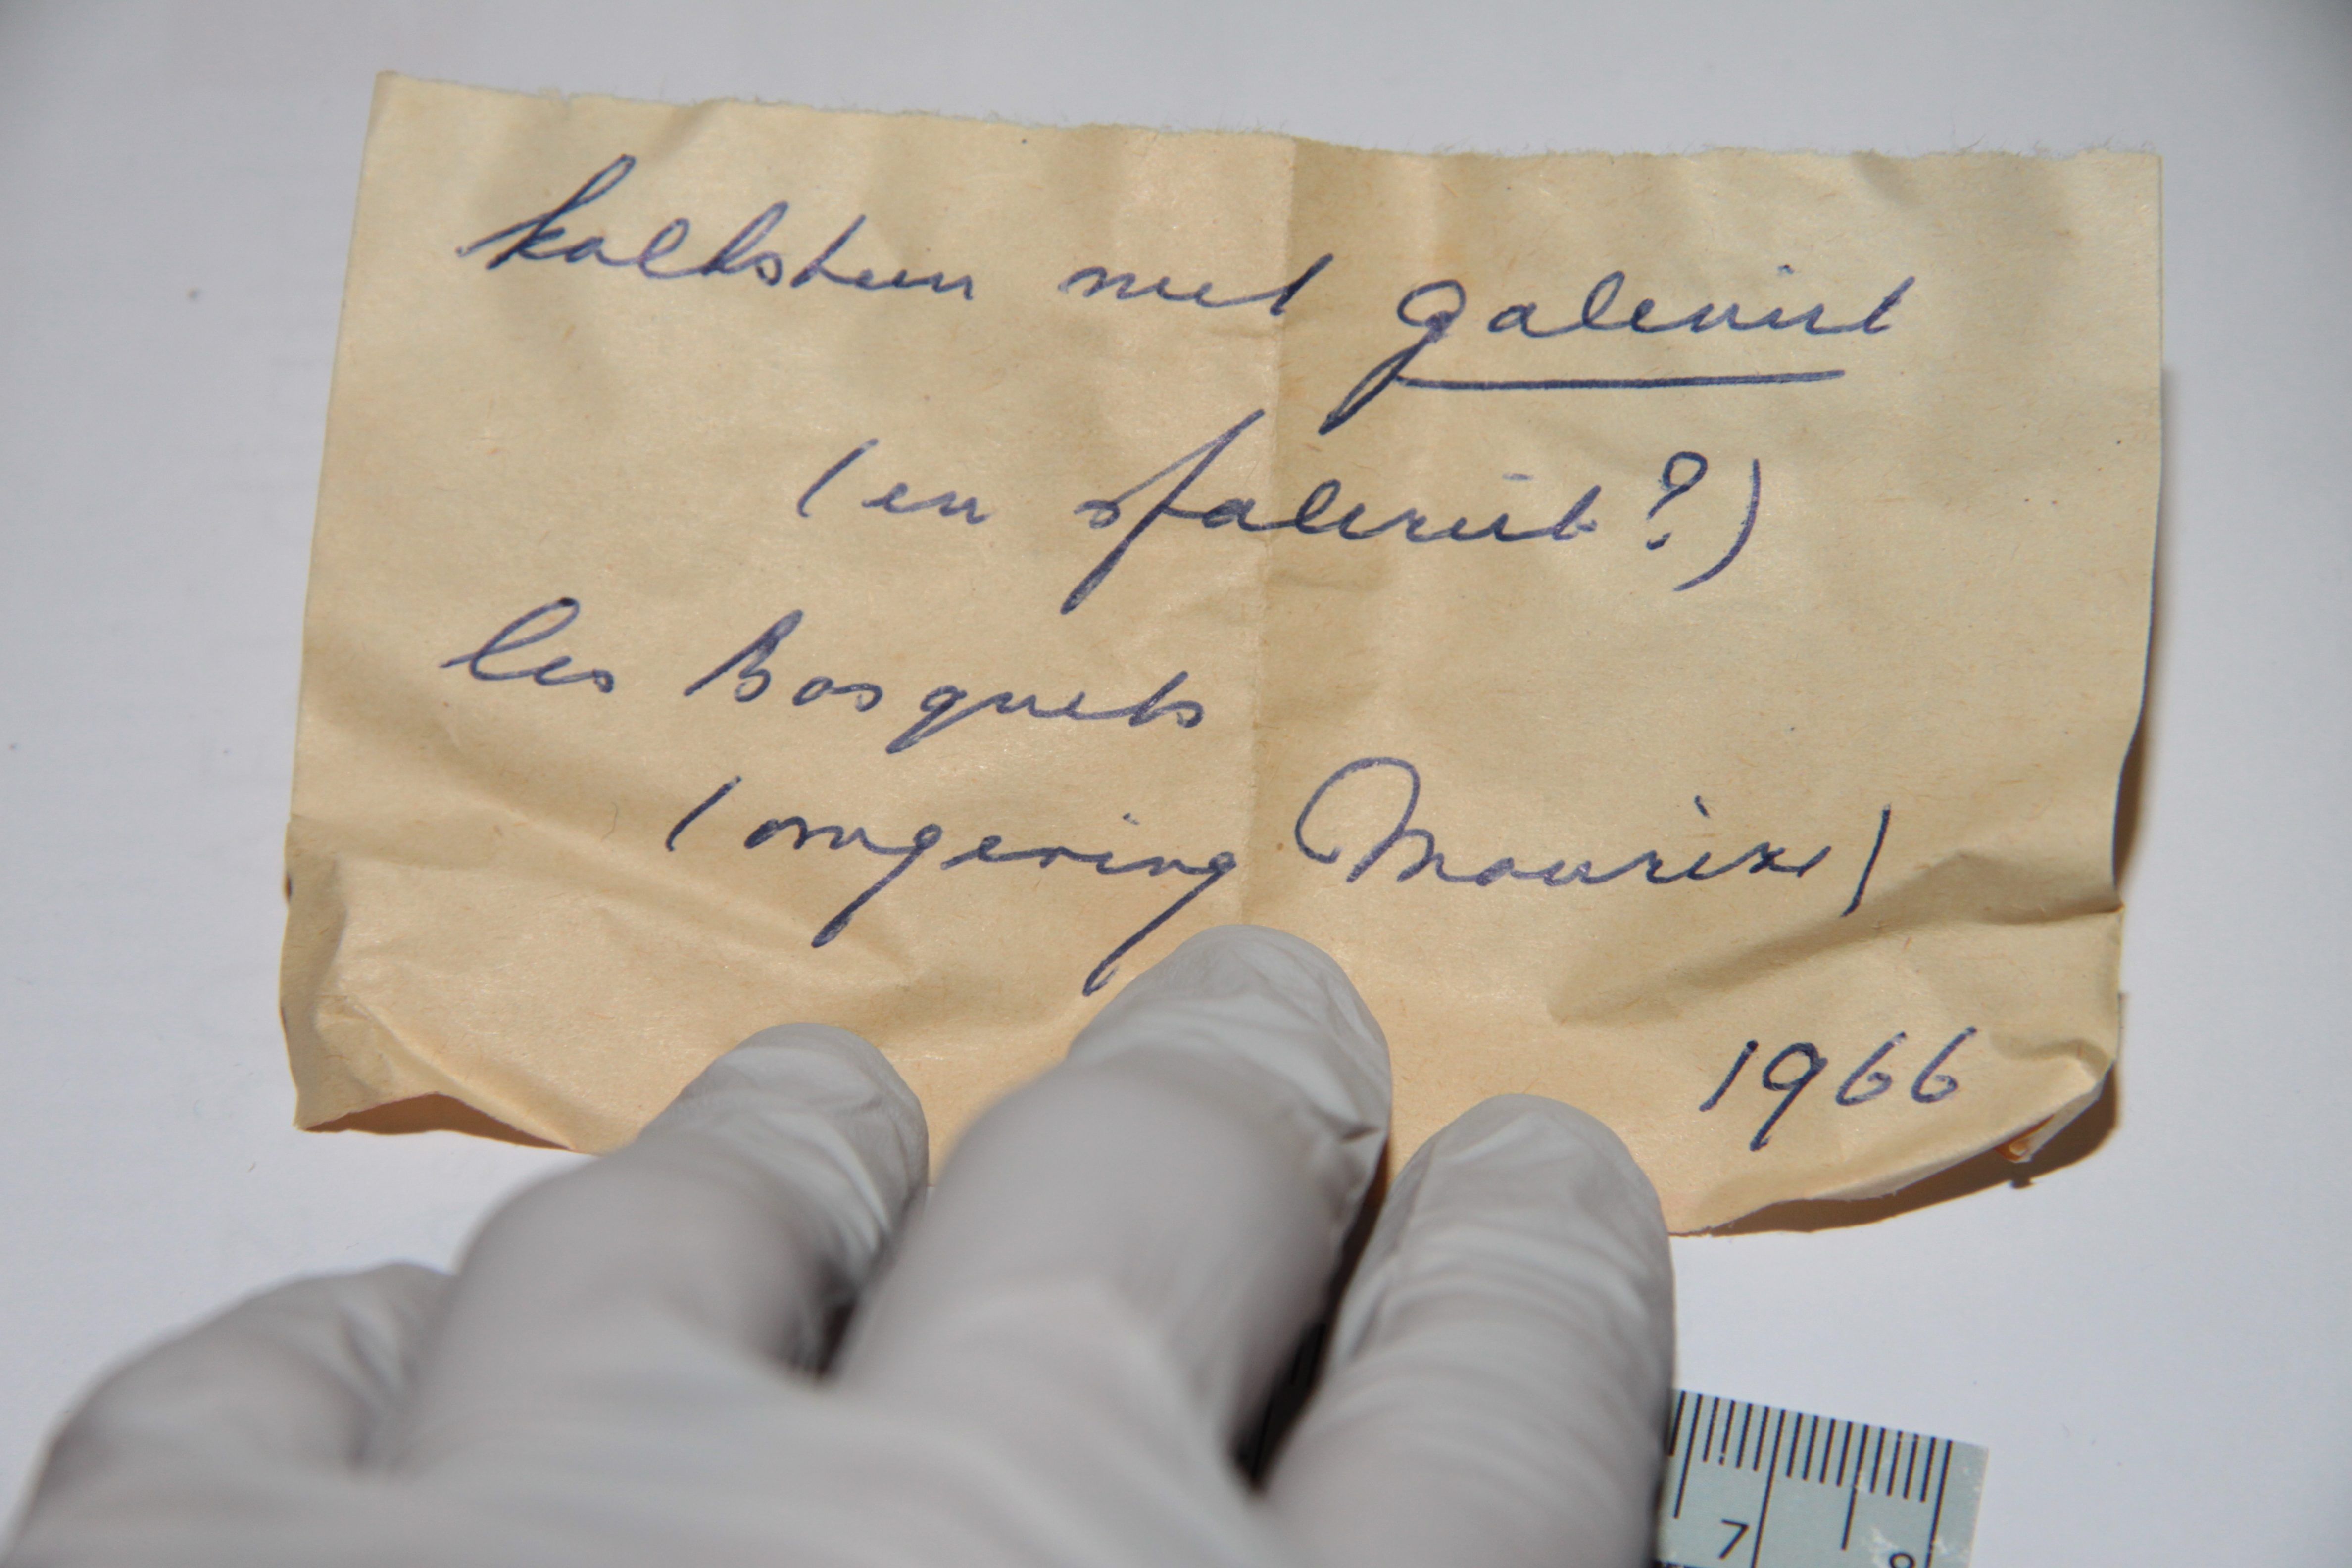 kalksteen met galeniet
(en sfaleriet?)
les Bosquets
(omgeving Mourèze)
1966
7
8